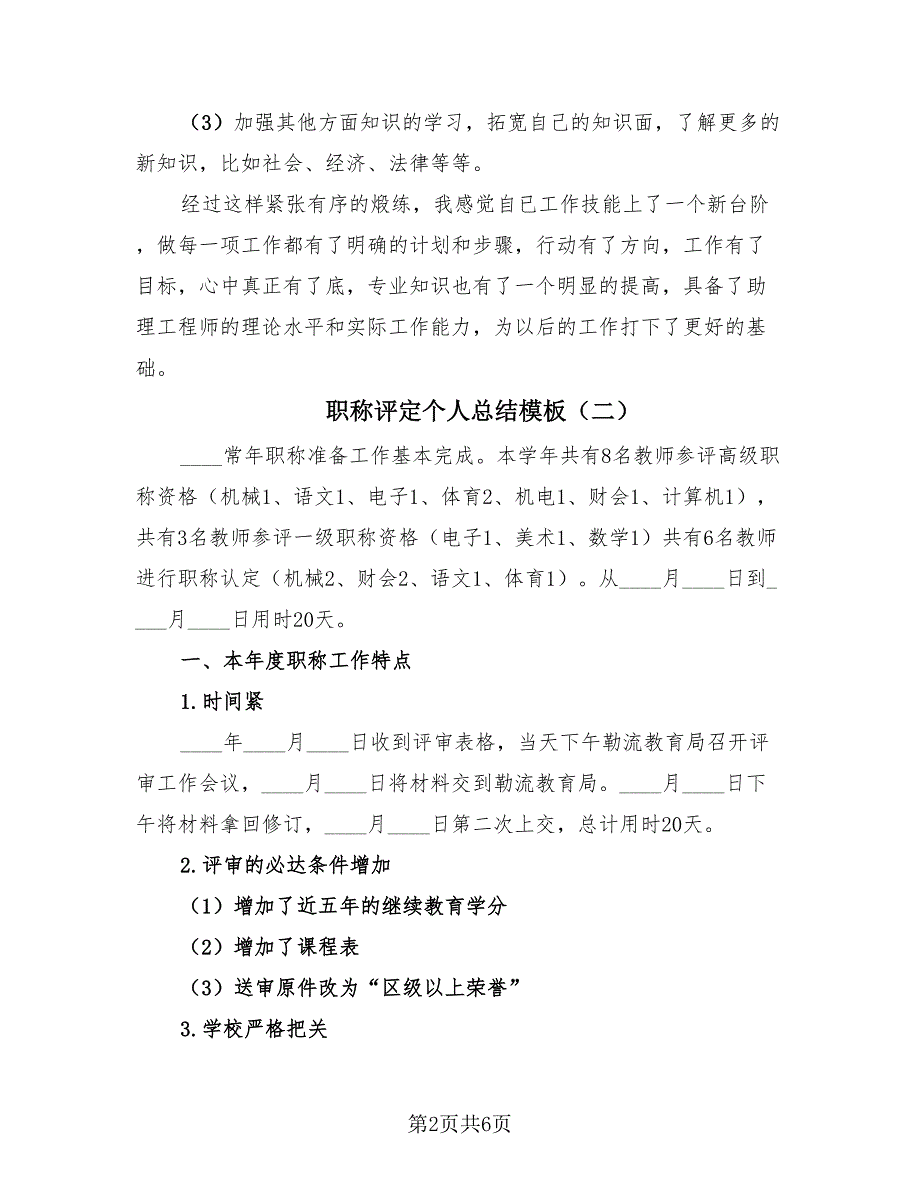 （3）加强其他方面知识的学习，拓宽自己的知识面，了解更多的
新知识，比如社会、经济、法律等等。
经过这样紧张有序的煅练，我感觉自已工作技能上了一个新台阶
，做每一项工作都有了明确的计划和步骤，行动有了方向，工作有了
目标，心中真正有了底，专业知识也有了一个明显的提高，具备了助
理工程师的理论水平和实际工作能力，为以后的工作打下了更好的基
础。
职称评定个人总结模板（二）
____常年职称准备工作基本完成。本学年共有8名教师参评高级职
称资格（机械1、语文1、电子1、体育2、机电1、财会1、计算机1），
共有3名教师参评一级职称资格（电子1、美术1、数学1）共有6名教师
进行职称认定（机械2、财会2、语文1、体育1）。从____月____日到_
___月____日用时20天。
一、本年度职称工作特点
1.时间紧
____年____月____日收到评审表格，当天下午勒流教育局召开评
审工作会议，____月____日将材料交到勒流教育局。____月____日下
午将材料拿回修订，____月____日第二次上交，总计用时20天。
2.评审的必达条件增加
（1）增加了近五年的继续教育学分
（2）增加了课程表
（3）送审原件改为“区级以上荣誉”
3.学校严格把关
第2页共6页